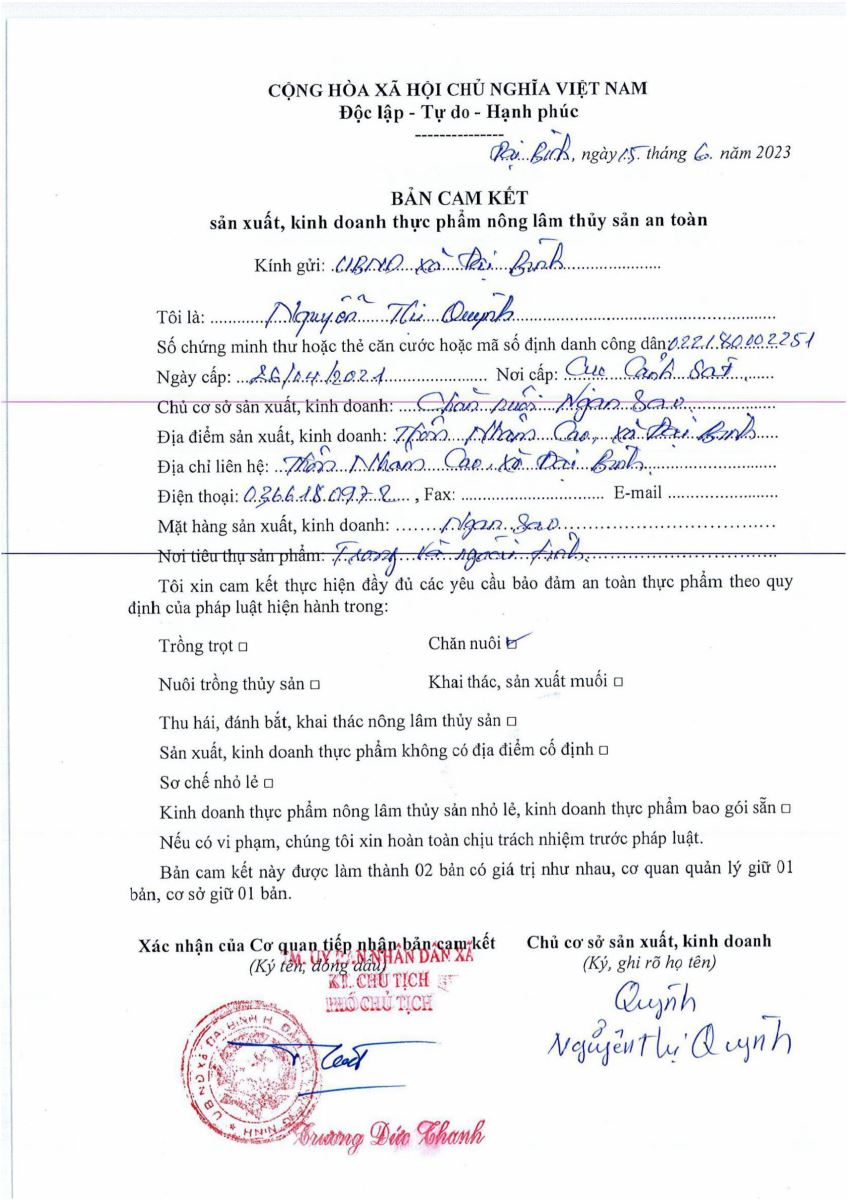 CỘNG HÒA XÃ HỘI CHỦ NGHĨA VIỆT NAM
Độc lập - Tự do - Hạnh phúc
---------------
Đại Bình, ngày 15 tháng 6 năm 2023
BẢN CAM KẾT
sản xuất, kinh doanh thực phẩm nông lâm thủy sản an toàn
Kính gửi: UBND xã Đại Bình
Tôi là: Nguyễn Thị Quỳnh
Số chứng minh thư hoặc thẻ căn cước hoặc mã số định danh công dân: 022180002251
Ngày cấp: 26/04/2021 Nơi cấp: Cục Cảnh Sát
Chủ cơ sở sản xuất, kinh doanh: Chăn nuôi Ngan Sao
Địa điểm sản xuất, kinh doanh: Thôn Nhâm Cao, xã Đại Bình
Địa chỉ liên hệ: Thôn Nhâm Cao, xã Đại Bình
Điện thoại: 0366180972, Fax: E-mail
Mặt hàng sản xuất, kinh doanh: Ngan Sao
Nơi tiêu thụ sản phẩm: Trong và ngoài tỉnh
Tôi xin cam kết thực hiện đầy đủ các yêu cầu bảo đảm an toàn thực phẩm theo quy
định của pháp luật hiện hành trong:
Trồng trọt □ Chăn nuôi ☑
Nuôi trồng thủy sản □ Khai thác, sản xuất muối □
Thu hái, đánh bắt, khai thác nông lâm thủy sản □
Sản xuất, kinh doanh thực phẩm không có địa điểm cố định □
Sơ chế nhỏ lẻ □
Kinh doanh thực phẩm nông lâm thủy sản nhỏ lẻ, kinh doanh thực phẩm bao gói sẵn □
Nếu có vi phạm, chúng tôi xin hoàn toàn chịu trách nhiệm trước pháp luật.
Bản cam kết này được làm thành 02 bản có giá trị như nhau, cơ quan quản lý giữ 01
bản, cơ sở giữ 01 bản.
Xác nhận của Cơ quan tiếp nhận bản cam kết Chủ cơ sở sản xuất, kinh doanh
(Ký tên, đóng dấu) (Ký, ghi rõ họ tên)
TM. ỦY BAN NHÂN DÂN XÃ
KT. CHỦ TỊCH
PHÓ CHỦ TỊCH
Quỳnh
Nguyễn Thị Quỳnh
Trương Đức Thanh